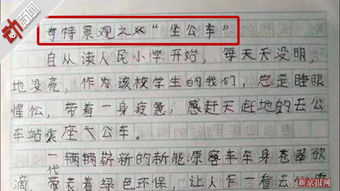 动新闻
奇特景观之“坐公车”
自从读人民小学开始，每天天没明，
地没亮，作为该校学生的我们，总是睡眼
惺忪，带着一身疲惫，感赶天赶地的去公
车站乘座大公车。
一辆辆崭新的新能源密车车身苍翠欲
滴，代表着绿色环保，让人乍一看去
新京报网